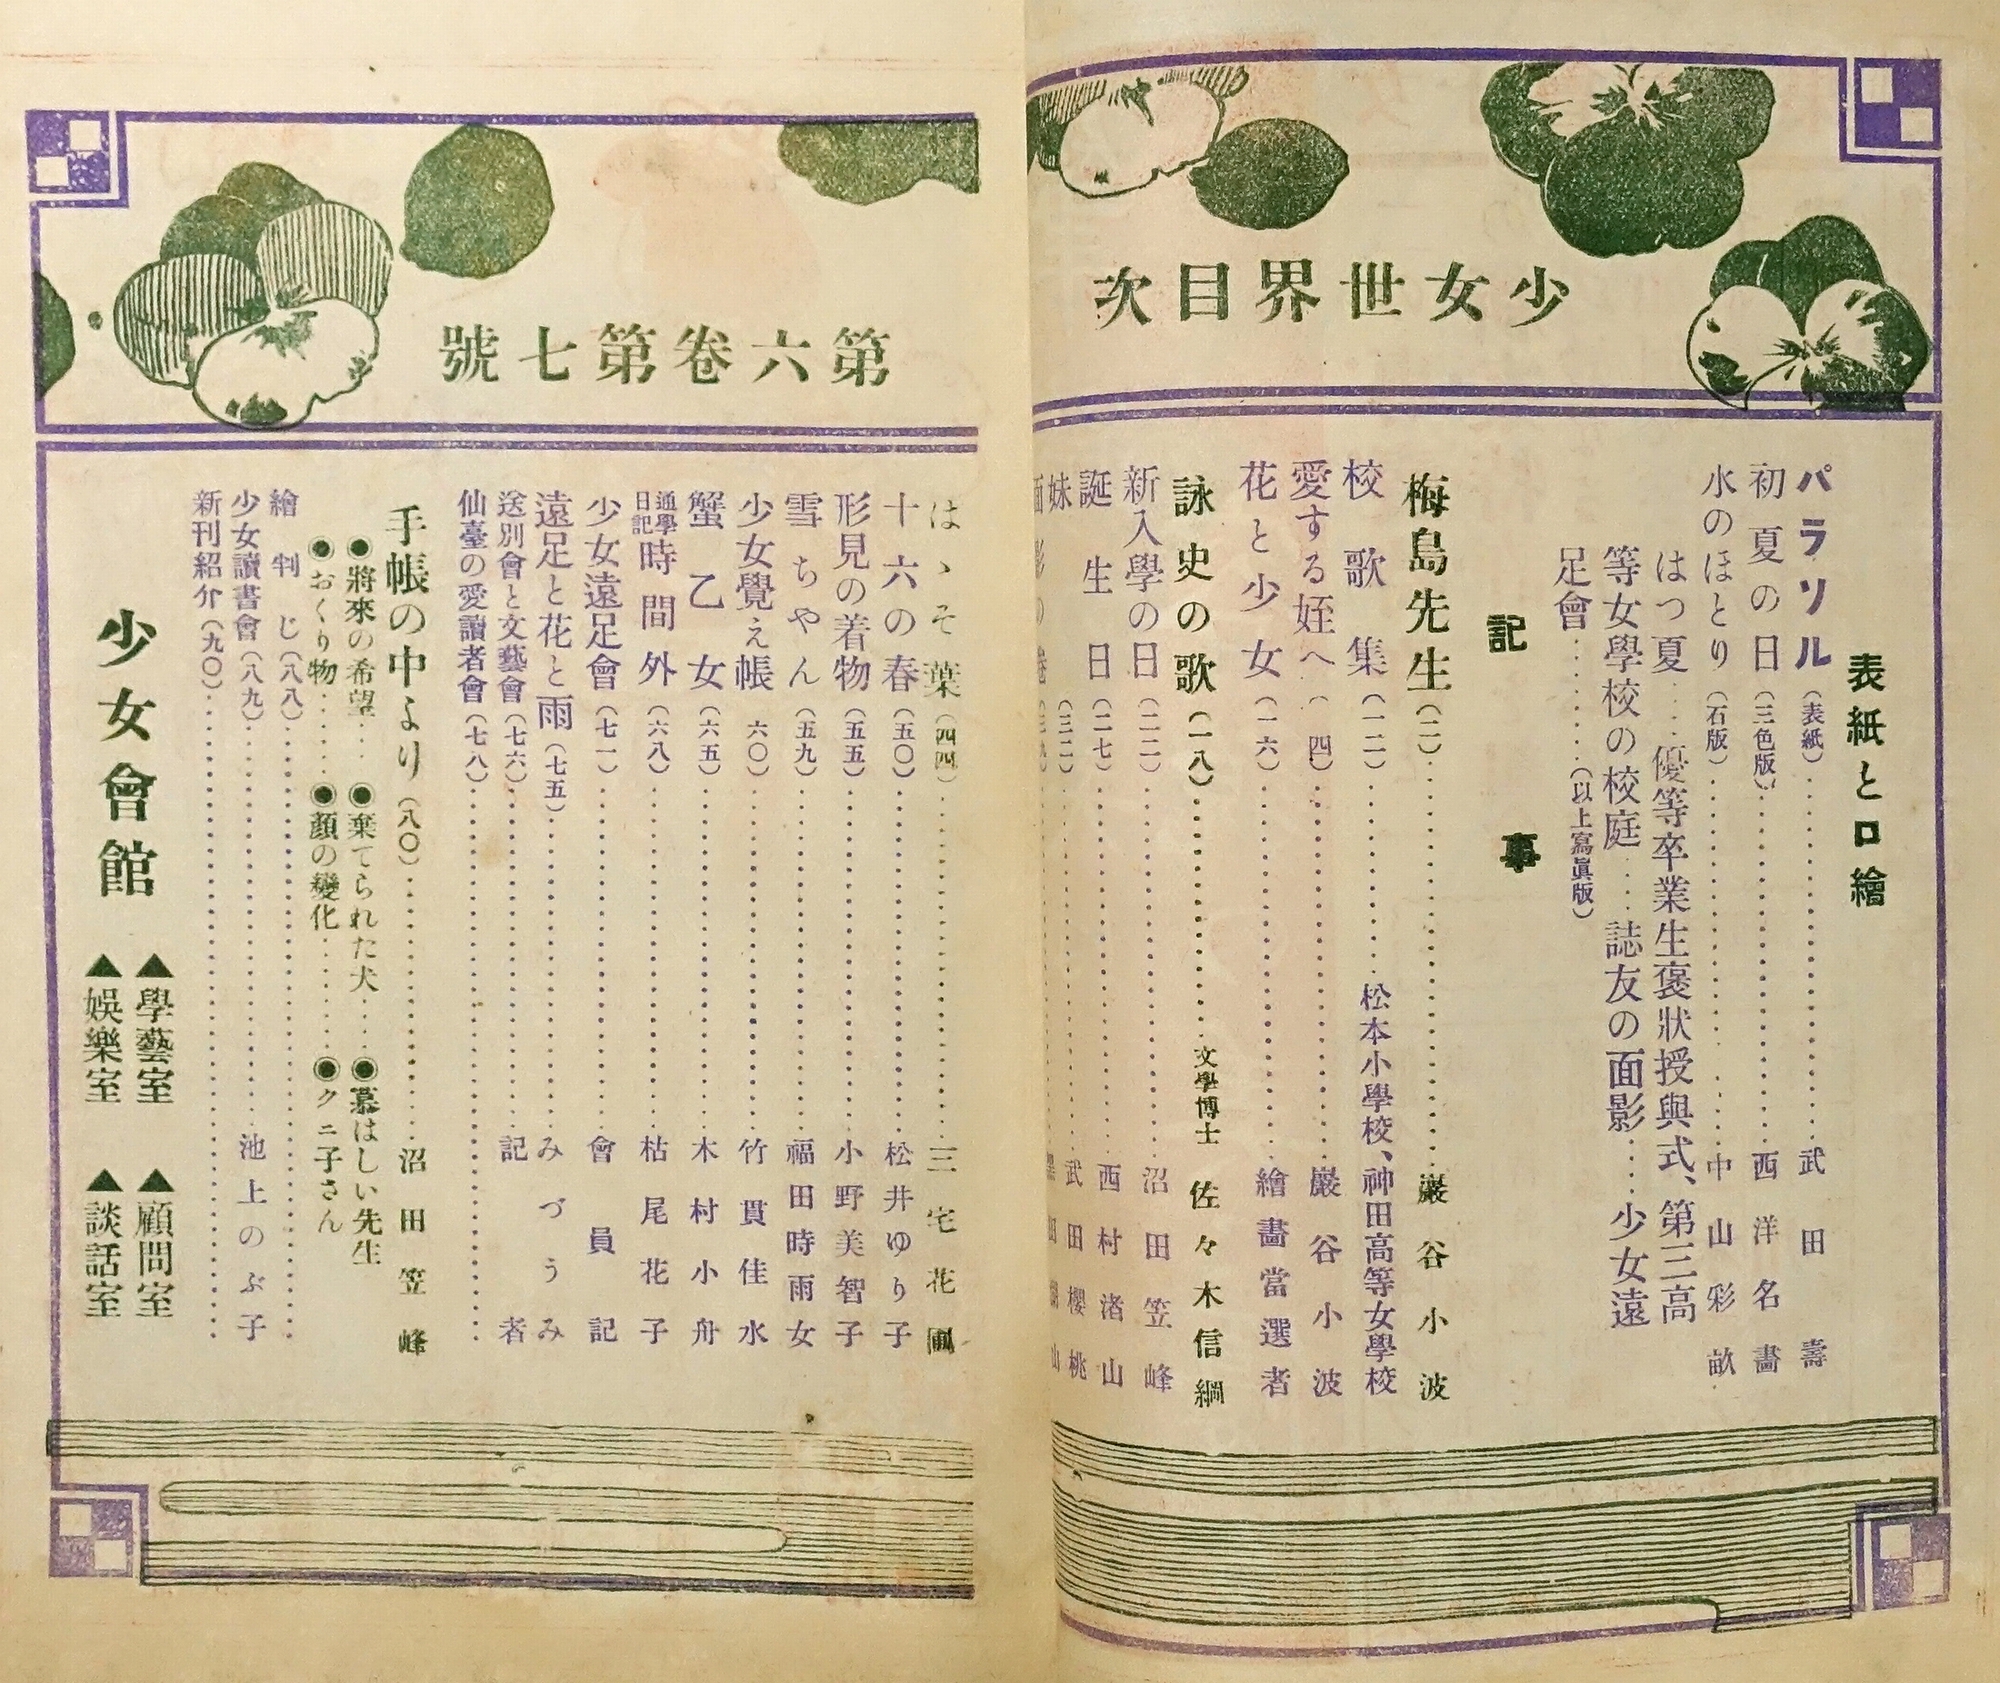 少女世界目次
表紙と口繪
パラソル(表紙)……武田壽
初夏の日(三色版)……西洋名畵
水のほとり(石版)……中山彩畝
はつ夏……優等卒業生褒狀授與式、第三高
等女學校の校庭……誌友の面影……少女遠
足會……(以上寫眞版)
記事
梅島先生(二)……巖谷小波
校歌集(一二)……松本小學校、神田高等女學校
愛する姪へ(一四)……巖谷小波
花と少女(一六)……繪畵當選者
詠史の歌(一八)……文學博士 佐々木信綱
新入學の日(二二)……沼田笠峰
誕生日(二七)……西村渚山
妹(三二)……武田櫻桃
面影の巻(三九)……黑田湖山
第六卷第七號
はゝそ葉(四四)……三宅花圃
十六の春(五〇)……松井ゆり子
形見の着物(五五)……小野美智子
雪ちやん(五九)……福田時雨女
少女覺え帳(六〇)……竹貫佳水
蟹乙女(六五)……木村小舟
通學日記時間外(六八)……枯尾花子
少女遠足會(七一)……會員記
遠足と花と雨(七五)……みづうみ
送別會と文藝會(七六)……記者
仙臺の愛讀者會(七八)……
手帳の中より(八〇)……沼田笠峰
◉將來の希望……◉棄てられた犬……◉慕はしい先生
◉おくり物……◉顔の變化……◉クニ子さん
繪判じ(八八)……
少女讀書會(八九)……池上のぶ子
新刊紹介(九〇)……
少女會館
▲學藝室 ▲顧問室
▲娯樂室 ▲談話室